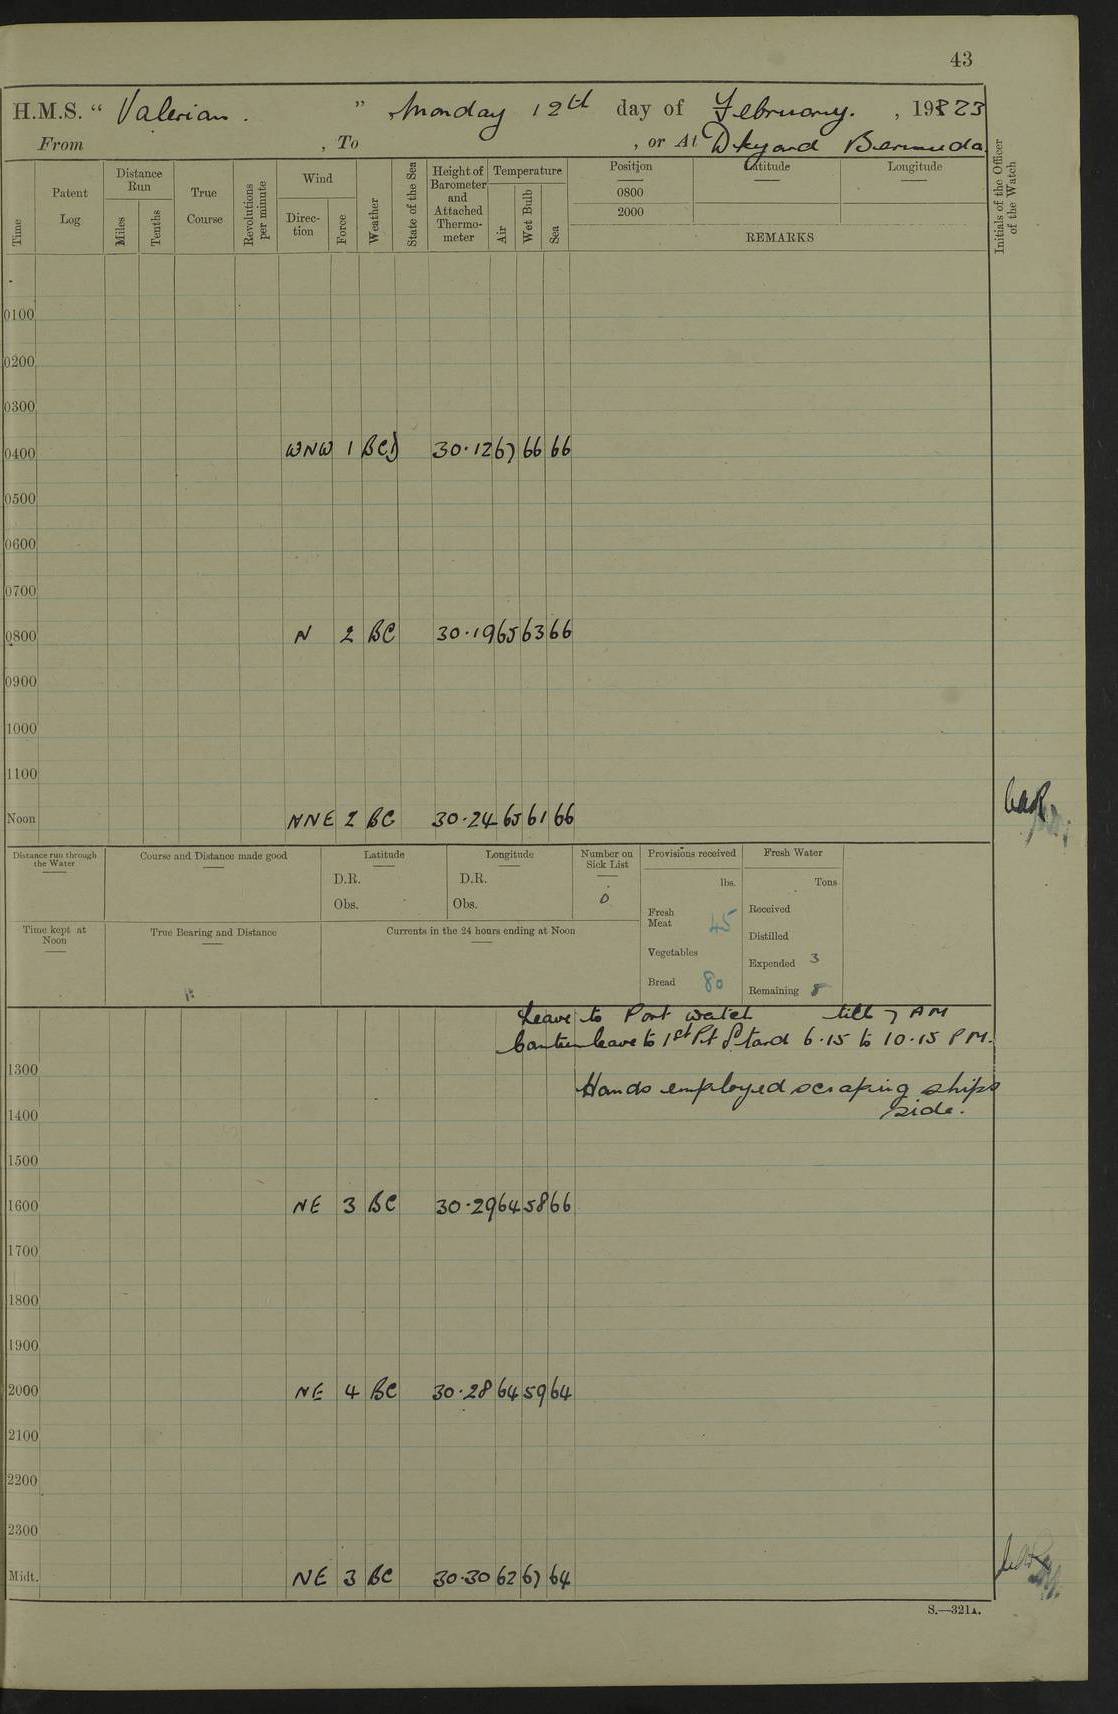 43
H.M.S. " Valerian. " Monday 12th day of February. , 1923
From , To , or At Dkyard Bermuda
Time
Patent Log
Distance Run
Miles
Tenths
True Course
Revolutions per minute
Wind
Direction
Force
Weather
State of the Sea
Height of Barometer and Attached Thermometer
Temperature
Air
Wet Bulb
Sea
Position
0800
2000
Latitude
Longitude
REMARKS
Initials of the Officer of the Watch
0100
0200
0300
0400 WNW 1 BC 30·12 67 66 66
0500
0600
0700
0800 N 2 BC 30·19 65 63 66
0900
1000
1100
Noon NNE 2 BC 30·24 65 61 66
Distance run through the Water
Course and Distance made good
Latitude
D.R.
Obs.
Longitude
D.R.
Obs.
Number on Sick List
0
Provisions received
lbs.
Fresh Meat 45
Vegetables
Bread 80
Fresh Water
Tons
Received
Distilled
Expended 3
Remaining 8
Time kept at Noon
True Bearing and Distance
Currents in the 24 hours ending at Noon
Leave to Port watch till 7 AM
leave to 1st Pt Stard 6·15 to 10·15 PM.
1300 Hands employed scraping ships
side.
1400
1500
1600 NE 3 BC 30·29 64 58 66
1700
1800
1900
2000 NE 4 BC 30·28 64 59 64
2100
2200
2300
Midt. NE 3 BC 30·30 62 67 64
S.—321A.